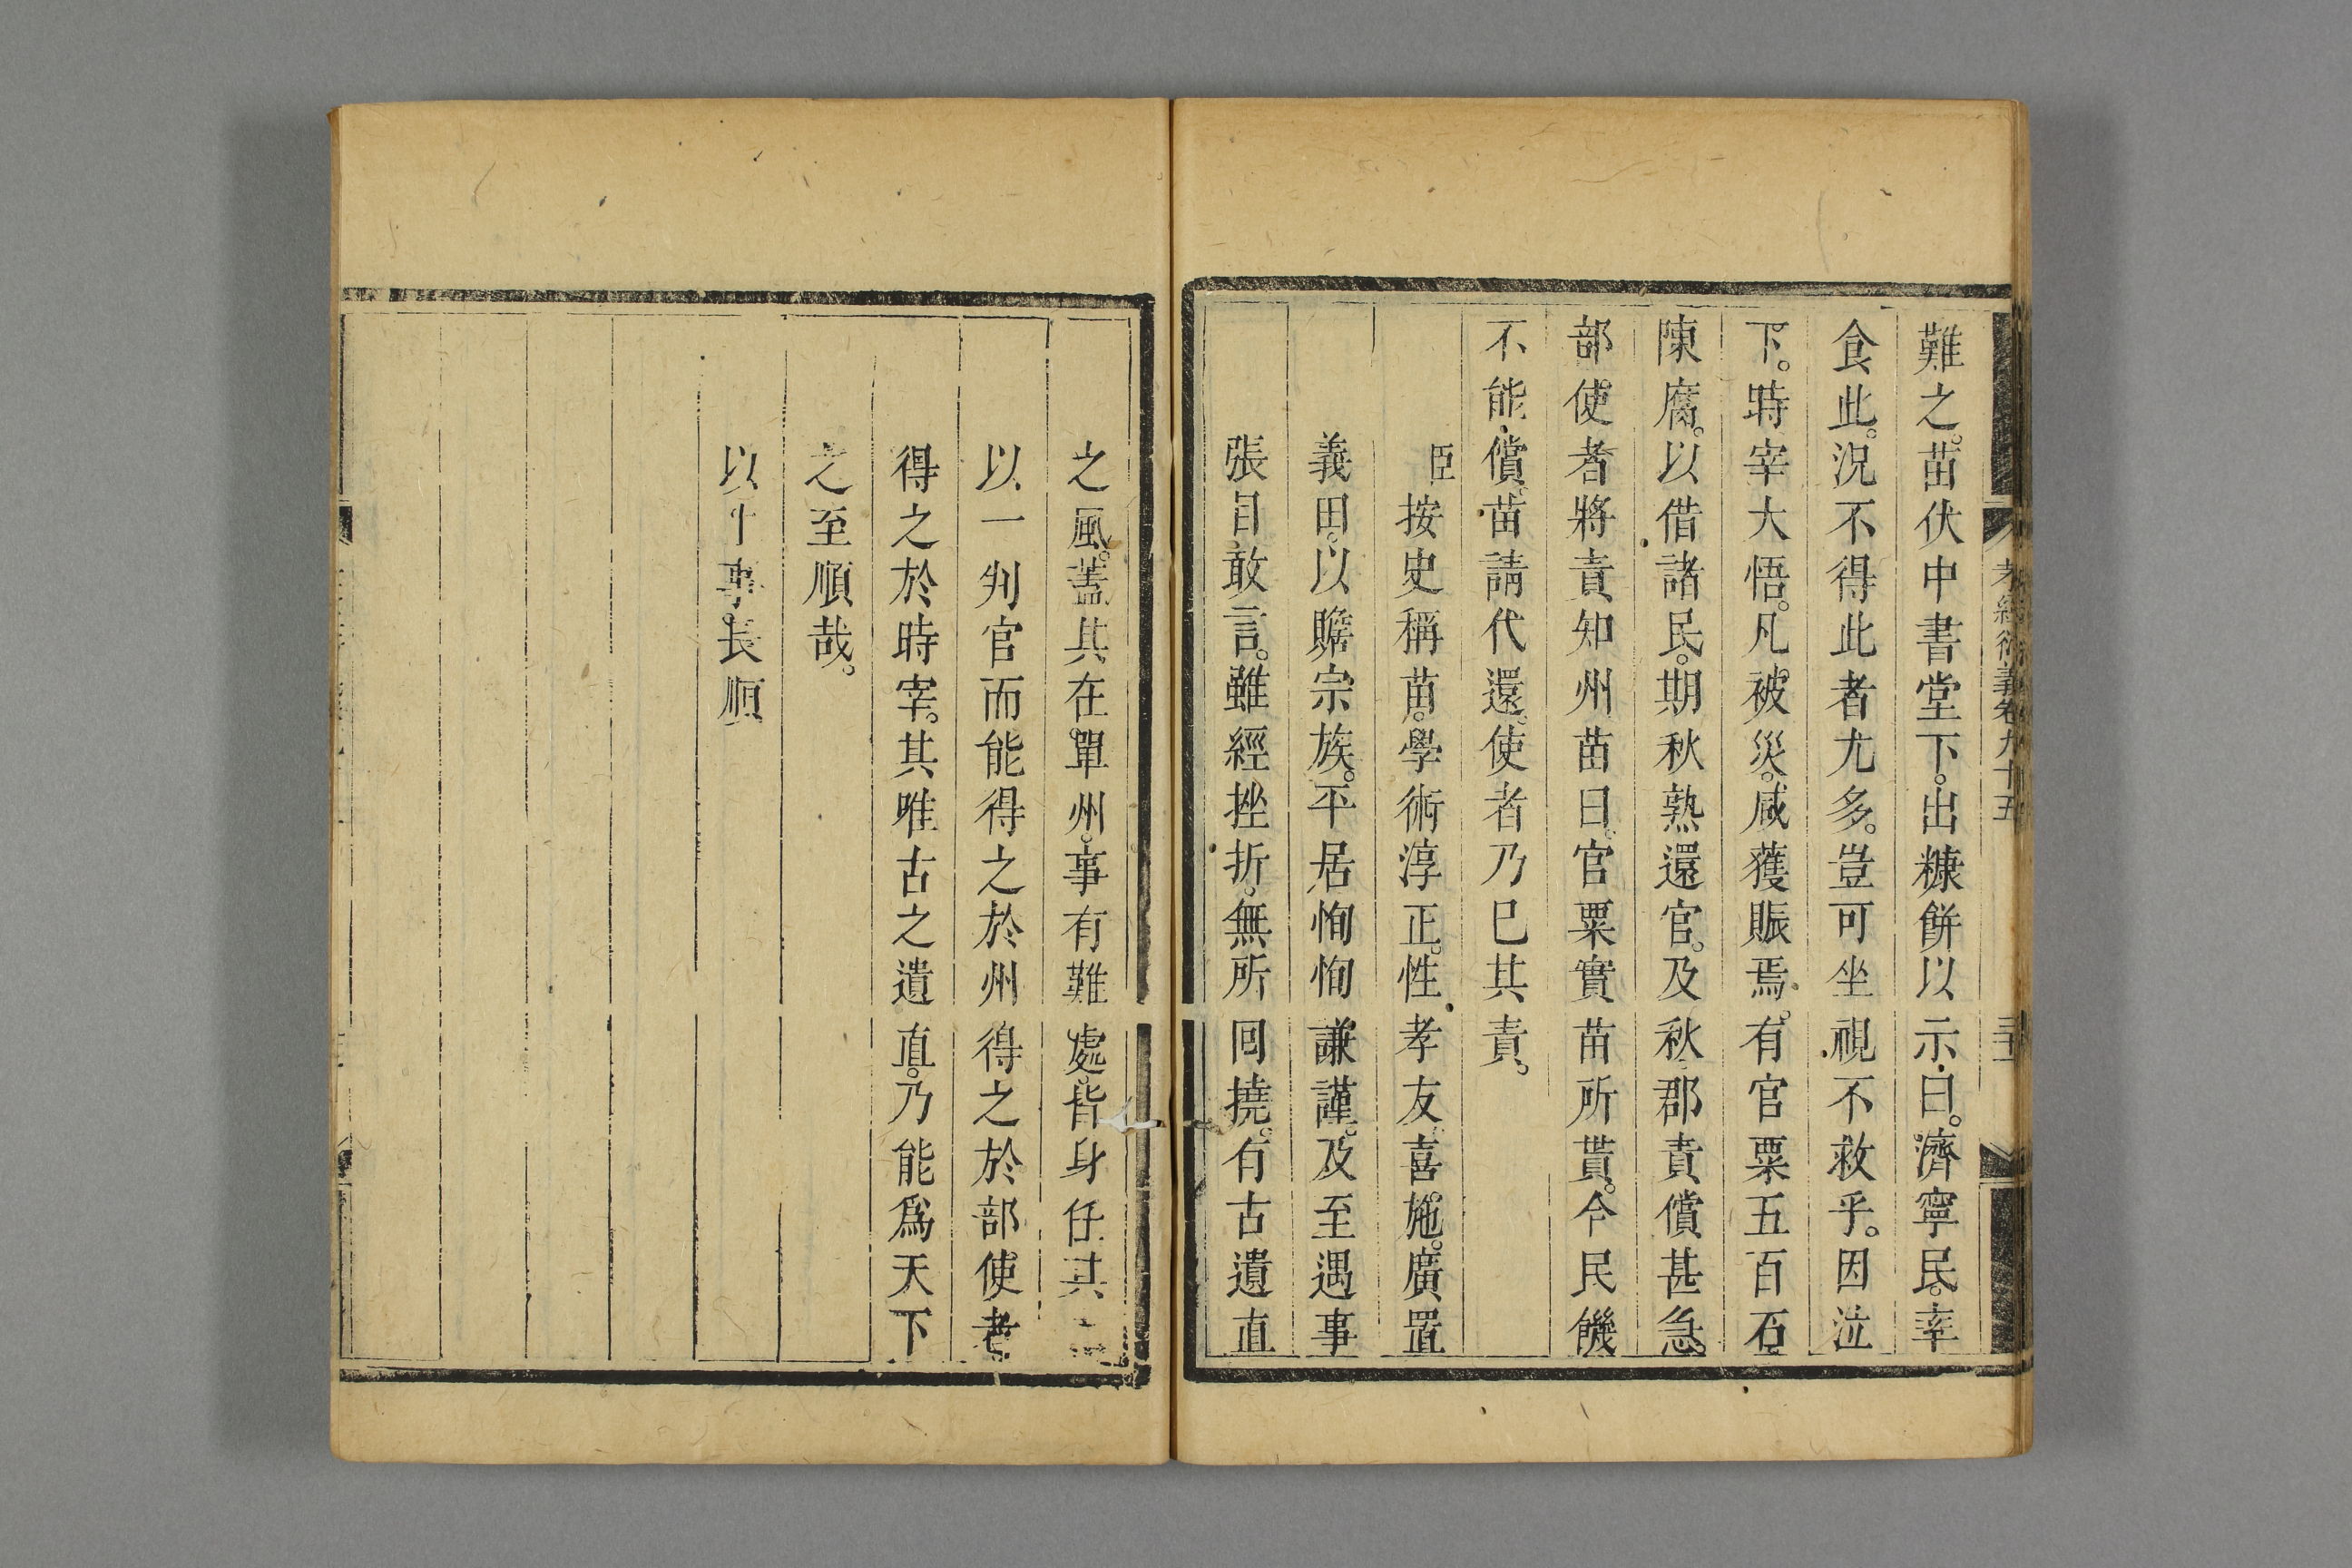 孝經衍義卷九十五
難之。苗伏中書堂下。出糠餅以示曰。濟寧民。率
食此。況不得此者尤多。豈可坐視不救乎。因泣
下。時宰大悟。凡被災。咸獲賑焉。有官粟五百石
陳腐。以借諸民。期秋熟還官。及秋郡責償甚急。
部使者將責知州苗曰。官粟實苗所貰。今民饑
不能償。苗請代還。使者乃已其責。
臣按史稱苗。學術淳正。性孝友喜施。廣置
義田。以贍宗族。平居恂恂謙謹。及至遇事
張目敢言。雖經挫折。無所囘撓。有古遺直
之風。蓋其在單州。事有難處。皆身任其
以一判官而能得之於州得之於部使者
得之於時宰。其唯古之遺直。乃能爲天下
之至順哉。
以十事長順